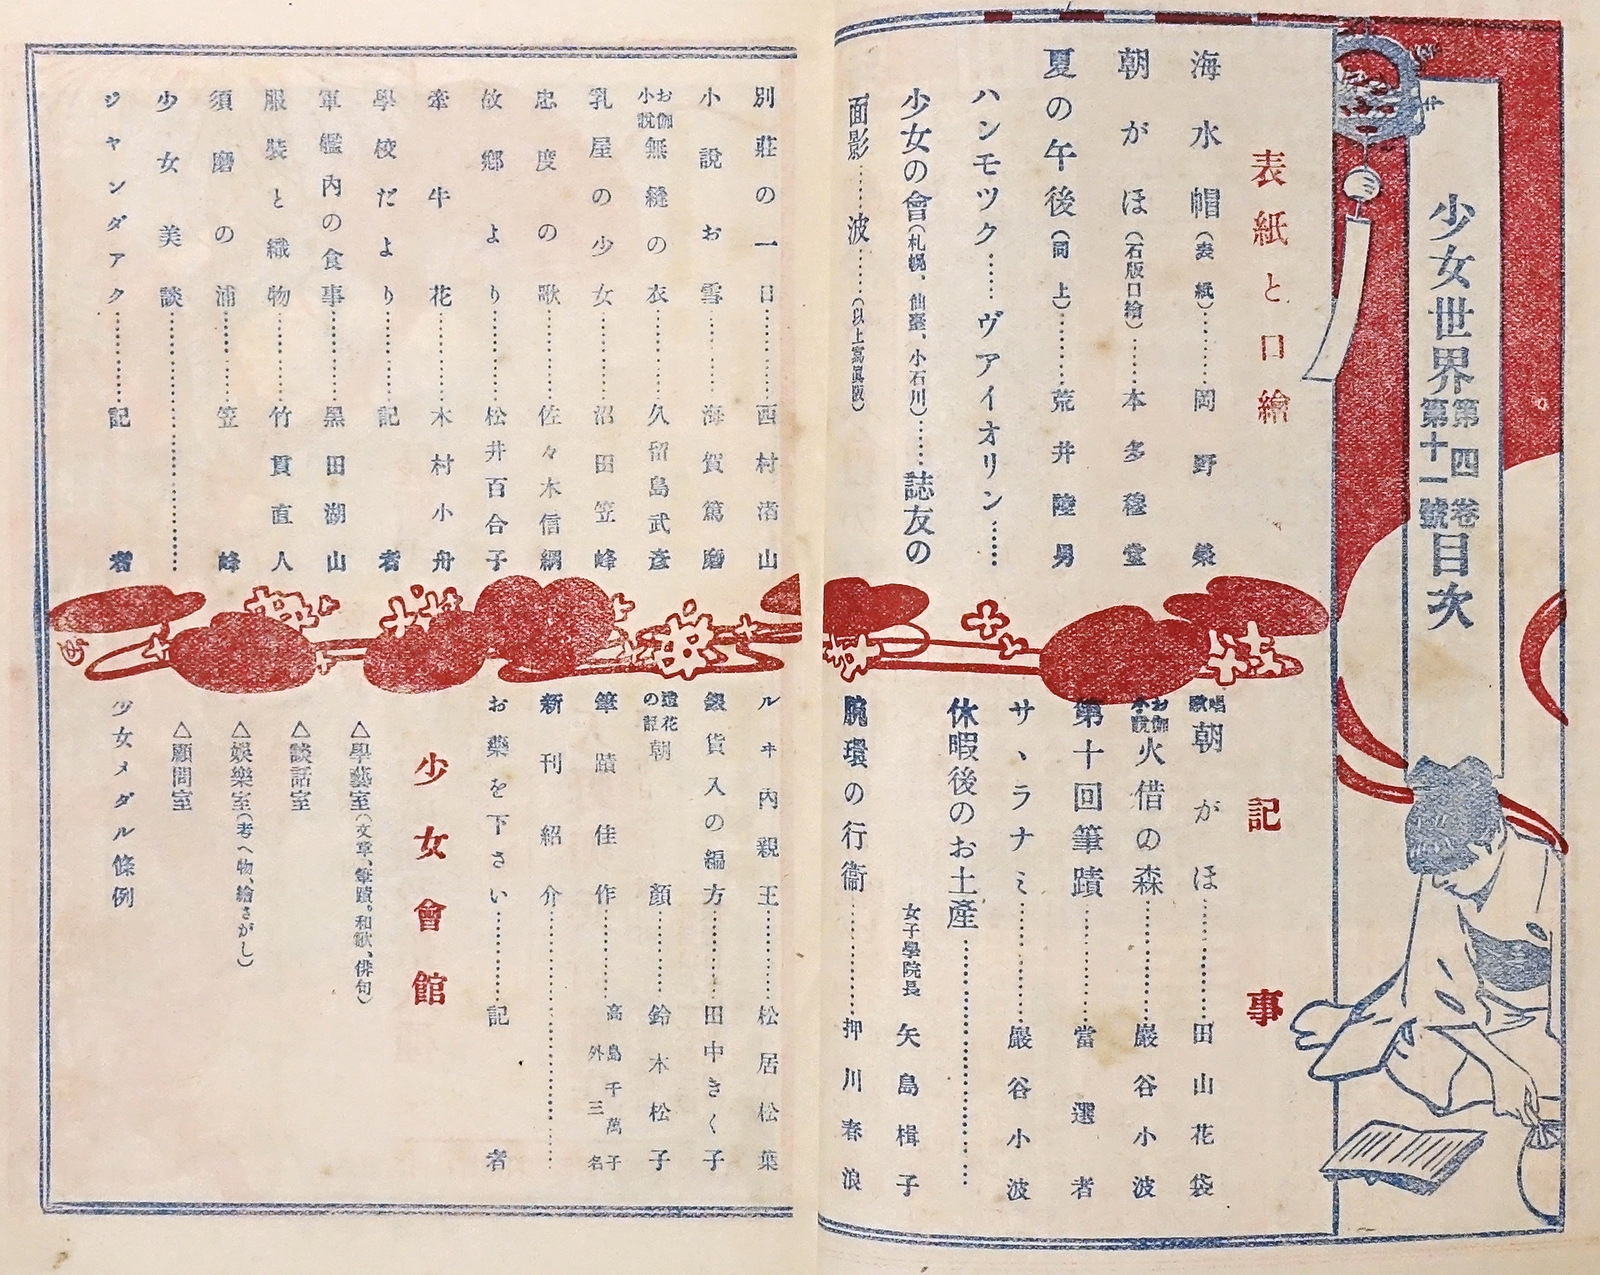 少女世界第四卷第十一號目次
表紙と口繪
海水帽(表紙)……岡野榮
朝がほ(石版口繪)……本多穆堂
夏の午後(同上)……荒井陸男
ハンモツク……ヴアイオリン……
少女の會(札幌、仙臺、小石川)……誌友の
面影……波……(以上寫眞版)
記事
唱歌朝がほ……田山花袋
お伽小說火借の森……巖谷小波
第十回筆蹟……當選者
サヽラナミ……巖谷小波
休暇後のお土產……
女子學院長 矢島楫子
腕環の行衞……押川春浪
別莊の一日……西村渚山
小說お雪……海賀篤磨
お伽小說無縫の衣……久留島武彥
乳屋の少女……沼田笠峰
忠度の歌……佐々木信綱
故鄕より……松井百合子
牽牛花……木村小舟
學校だより……記者
軍艦內の食事……黑田湖山
服裝と織物……竹貫直人
須磨の浦……笠峰
少女美談……
ジヤンダアク……記者
ルヰ內親王……松居松葉
銀貨入の編方……田中きく子
遺花の記朝顏……鈴木松子
筆蹟佳作……高島千萬子外三名
新刊紹介……
お藥を下さい……記者
少女會館
△學藝室(文章、筆蹟。和歌、俳句)
△談話室
△娛樂室(考へ物、繪さがし)
△顧問室
少女メダル條例